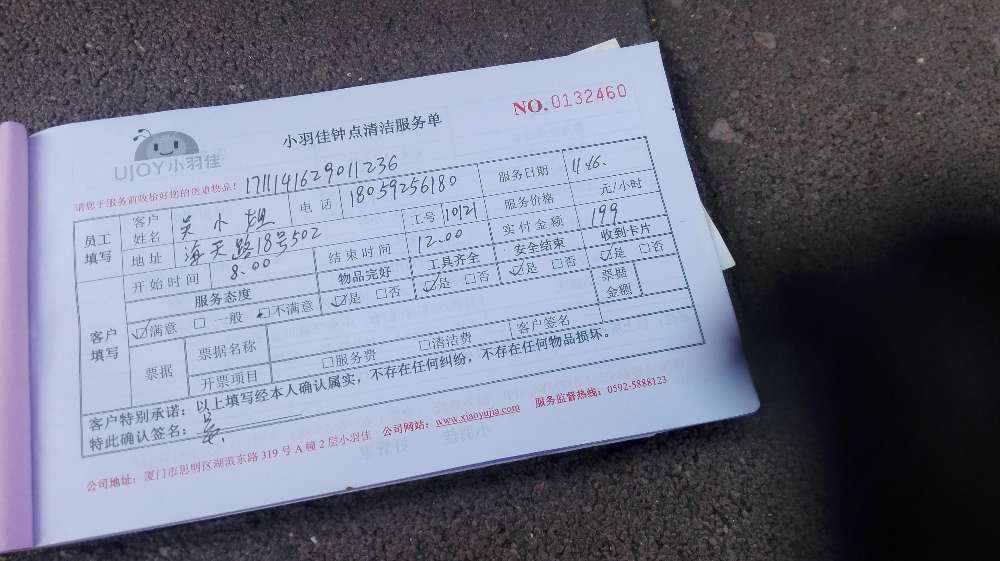 UJOY小羽佳
小羽佳钟点清洁服务单
NO.0132460
请您于服务前收拾好您的贵重物品! 1711141629011236
员工填写 客户姓名 吴小姐 电话 18059256180 服务日期
地址 海天路18号502 工号 10121 服务价格 元/小时
开始时间 8.00 结束时间 12.00 实付金额 199
客户填写 服务态度 物品完好 工具齐全 安全结束 收到卡片
☑满意 □一般 □不满意 ☑是 □否 ☑是 □否 ☑是 □否 ☑是 □否
票据 票据名称 票据金额
开票项目 □服务费 □清洁费 客户签名
客户特别承诺:以上填写经本人确认属实,不存在任何纠纷,不存在任何物品损坏。
特此确认签名: 吴
公司地址:厦门市思明区湖滨东路319号A幢2层小羽佳 公司网站:www.xiaoyujia.com 服务监督热线:0592-5888123